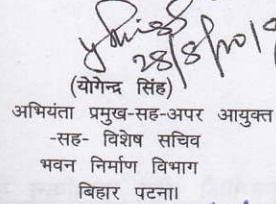 28/8/2019
(योगेन्द्र सिंह)
अभियंता प्रमुख-सह-अपर आयुक्त
-सह- विशेष सचिव
भवन निर्माण विभाग
बिहार पटना।